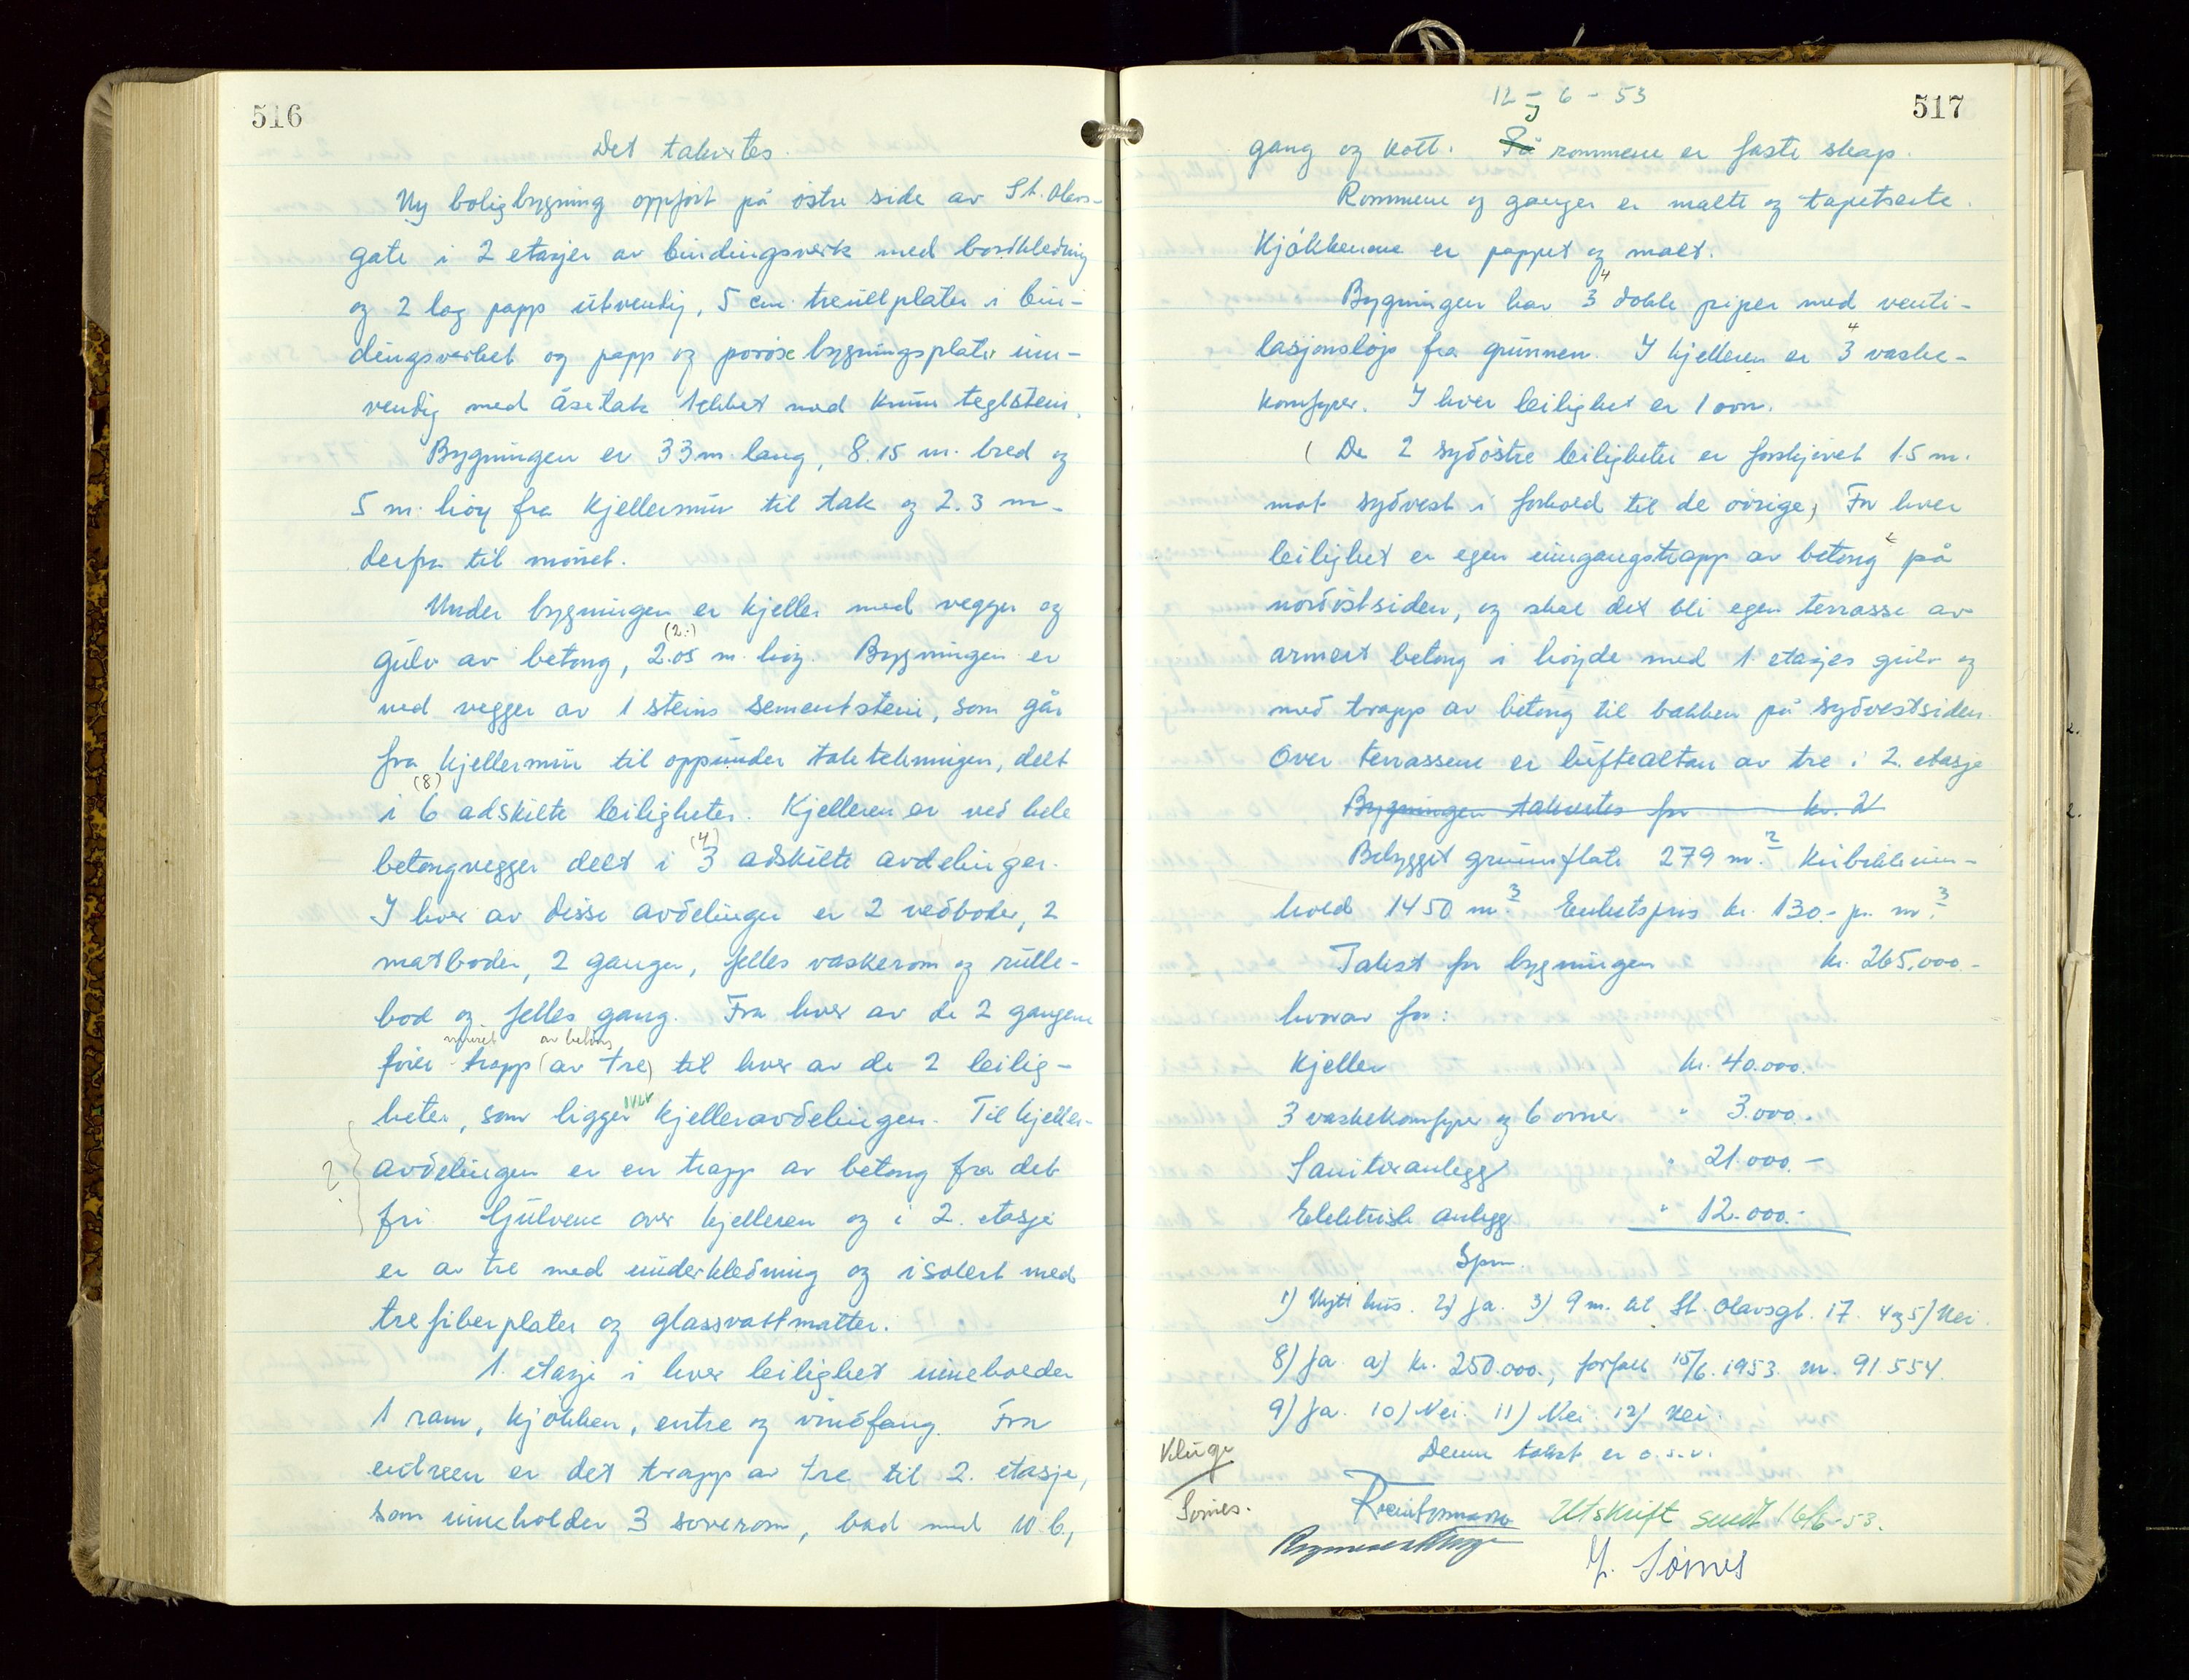 516
Det takertes.
Ny boligbygning oppført på østre side av St. Olavs-
gate i 2 etasjer av bindingsverk med bordkledning
og 2 lag papp utvendig, 5 cm. treullplater i bin-
dingsverket og papp og porøse bygningsplater inn-
vendig med åsetak tekket med krum teglstein.
Bygningen er 33 m. lang, 8.15 m. bred og
5 m. høy fra kjellermur til tak og 2.3 m.
derfra til mønet.
Under bygningen er kjeller med vegger og
(2.-)
gulv av betong, 2.05 m. høy. Bygningen er
ved vegger av 1 steins sementstein, som går
fra kjellermur til oppunder taktekningen, delt
(8)
i 6 adskilte leiligheter. Kjelleren er ved hele
(4)
betongvegger delt i 3 adskilte avdelinger.
I hver av disse avdelinger er 2 vedboder, 2
matboder, 2 ganger, felles vaskerom og rulle-
bod og felles gang. Fra hver av de 2 gangene
muret av betong
fører trapp (av tre) til hver av de 2 leilig-
over
heter, som ligger kjelleravdelingen. Til kjeller-
? avdelingen er en trapp av betong fra det
fri. Gulvene over kjelleren og i 2. etasje
er av tre med underkledning og isolert med
trefiberplater og glassvattmatter.
1. etasje i hver leilighet inneholder
1 rom, kjøkken, entre og vindfang. Fra
entreen er det trapp av tre til 2. etasje,
som inneholder 3 soverom, bad med W.C,
517
12 - 6 - 53
I
gang og kott. På rommene er faste skap.
Rommene og ganger er malte og tapetserte.
Kjøkkenene er pappet og malt.
4
Bygningen har 3 doble piper med venti-
4
lasjonsløp fra grunnen. I kjelleren er 3 vaske-
komfyrer. I hver leilighet er 1 ovn.
( De 2 sydøstre leiligheter er forskjøvet 1.5 m.
mot sydvest i forhold til de øvrige) For hver
leilighet er egen inngangstrapp av betong på
nordøstsiden, og skal det bli egen terrasse av
armert betong i høyde med 1. etasjes gulv og
med trapp av betong til bakken på sydvestsiden.
Over terrassene er luftealtan av tre i 2. etasje
Bygningen takertes for kr. 2
Bebygget grunnflate 279 m.² Kubikkinn-
hold 1450 m.³ Enhetspris kr. 130.- pr. m.³
Takst for bygningen kr. 265.000.-
hvorav for:
Kjeller kr. 40.000.-
3 vaskekomfyrer og 6 ovner " 3.000.-
Sanitæranlegg " 21.000.-
Elektrisk anlegg " 12.000.-
Spm.
1) Nytt hus. 2) Ja. 3) 9 m. til St. Olavsgt. 17. 4 og 5) Nei.
8) Ja. a) kr. 250.000., forfall 15/6.1953. nr. 91.554.
9) Ja. 10) Nei. 11) Nei. 12) Nei.
Kluge
Denne takst er o.s.v.
Somes.
Utskrift sendt 16/6-53.